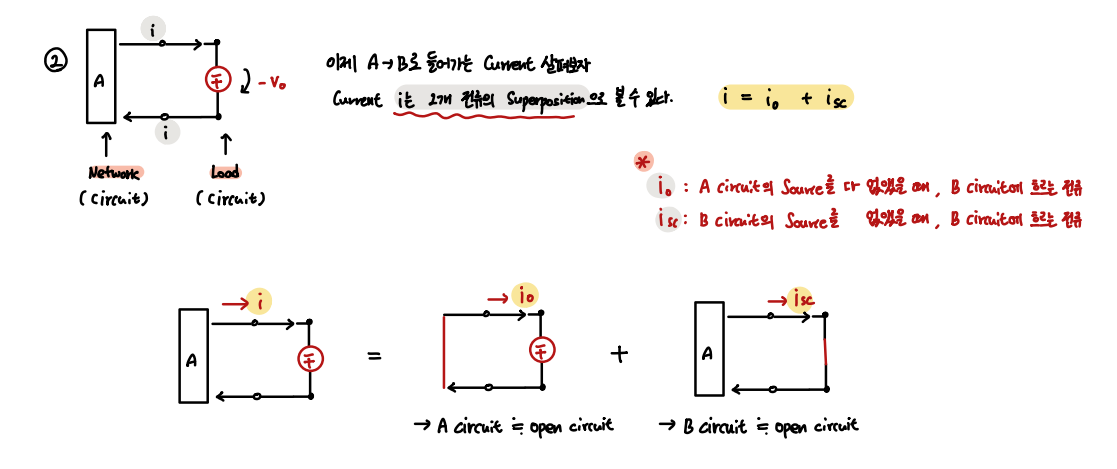 ②
i
A
∓
- v₀
i
Network
(circuit)
Load
(circuit)
이제 A → B로 들어가는 Current 살펴보자
Current i는 2개 전류의 Superposition으로 볼 수 있다.
i = i₀ + isc
*
i₀ : A circuit의 Source를 다 없앴을 때, B circuit에 흐르는 전류
isc : B circuit의 Source를 없앴을 때, B circuit에 흐르는 전류
→ i
A
∓
=
→ i₀
∓
+
→ isc
A
→ A circuit ≒ open circuit
→ B circuit ≒ open circuit